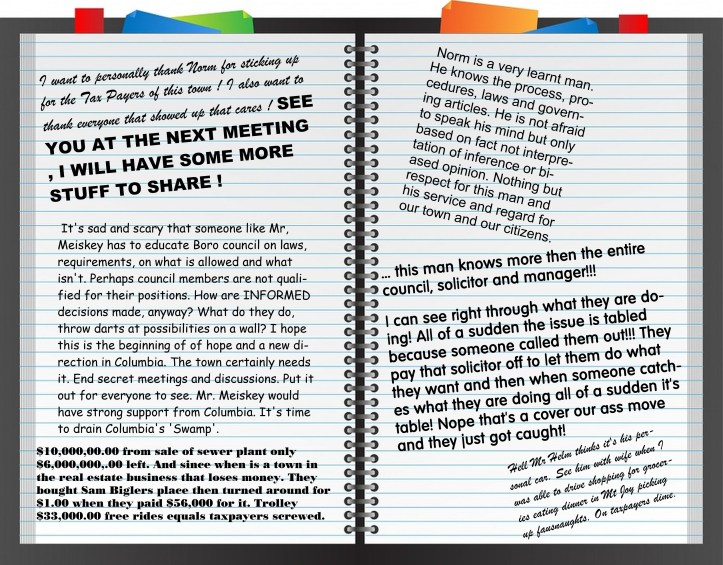 I want to personally thank Norm for sticking up
for the Tax Payers of this town ! I also want to
thank everyone that showed up that cares ! SEE
YOU AT THE NEXT MEETING
, I WILL HAVE SOME MORE
STUFF TO SHARE !
It's sad and scary that someone like Mr,
Meiskey has to educate Boro council on laws,
requirements, on what is allowed and what
isn't. Perhaps council members are not quali-
fied for their positions. How are INFORMED
decisions made, anyway? What do they do,
throw darts at possibilities on a wall? I hope
this is the beginning of of hope and a new di-
rection in Columbia. The town certainly needs
it. End secret meetings and discussions. Put it
out for everyone to see. Mr. Meiskey would
have strong support from Columbia. It's time
to drain Columbia's 'Swamp'.
$10,000,00.00 from sale of sewer plant only
$6,000,000,.00 left. And since when is a town in
the real estate business that loses money. They
bought Sam Biglers place then turned around for
$1.00 when they paid $56,000 for it. Trolley
$33,000.00 free rides equals taxpayers screwed.
Norm is a very learnt man.
He knows the process, pro-
cedures, laws and govern-
ing articles. He is not afraid
to speak his mind but only
based on fact not interpre-
tation of inference or bi-
ased opinion. Nothing but
respect for this man and
his service and regard for
our town and our citizens.
... this man knows more then the entire
council, solicitor and manager!!!
I can see right through what they are do-
ing! All of a sudden the issue is tabled
because someone called them out!!! They
pay that solicitor off to let them do what
they want and then when someone catch-
es what they are doing all of a sudden it's
table! Nope that's a cover our ass move
and they just got caught!
Hell Mr Helm thinks it's his per-
sonal car. See him with wife when I
was able to drive shopping for grocer-
ies eating dinner in Mt Joy picking
up fausnaughts. On taxpayers dime.